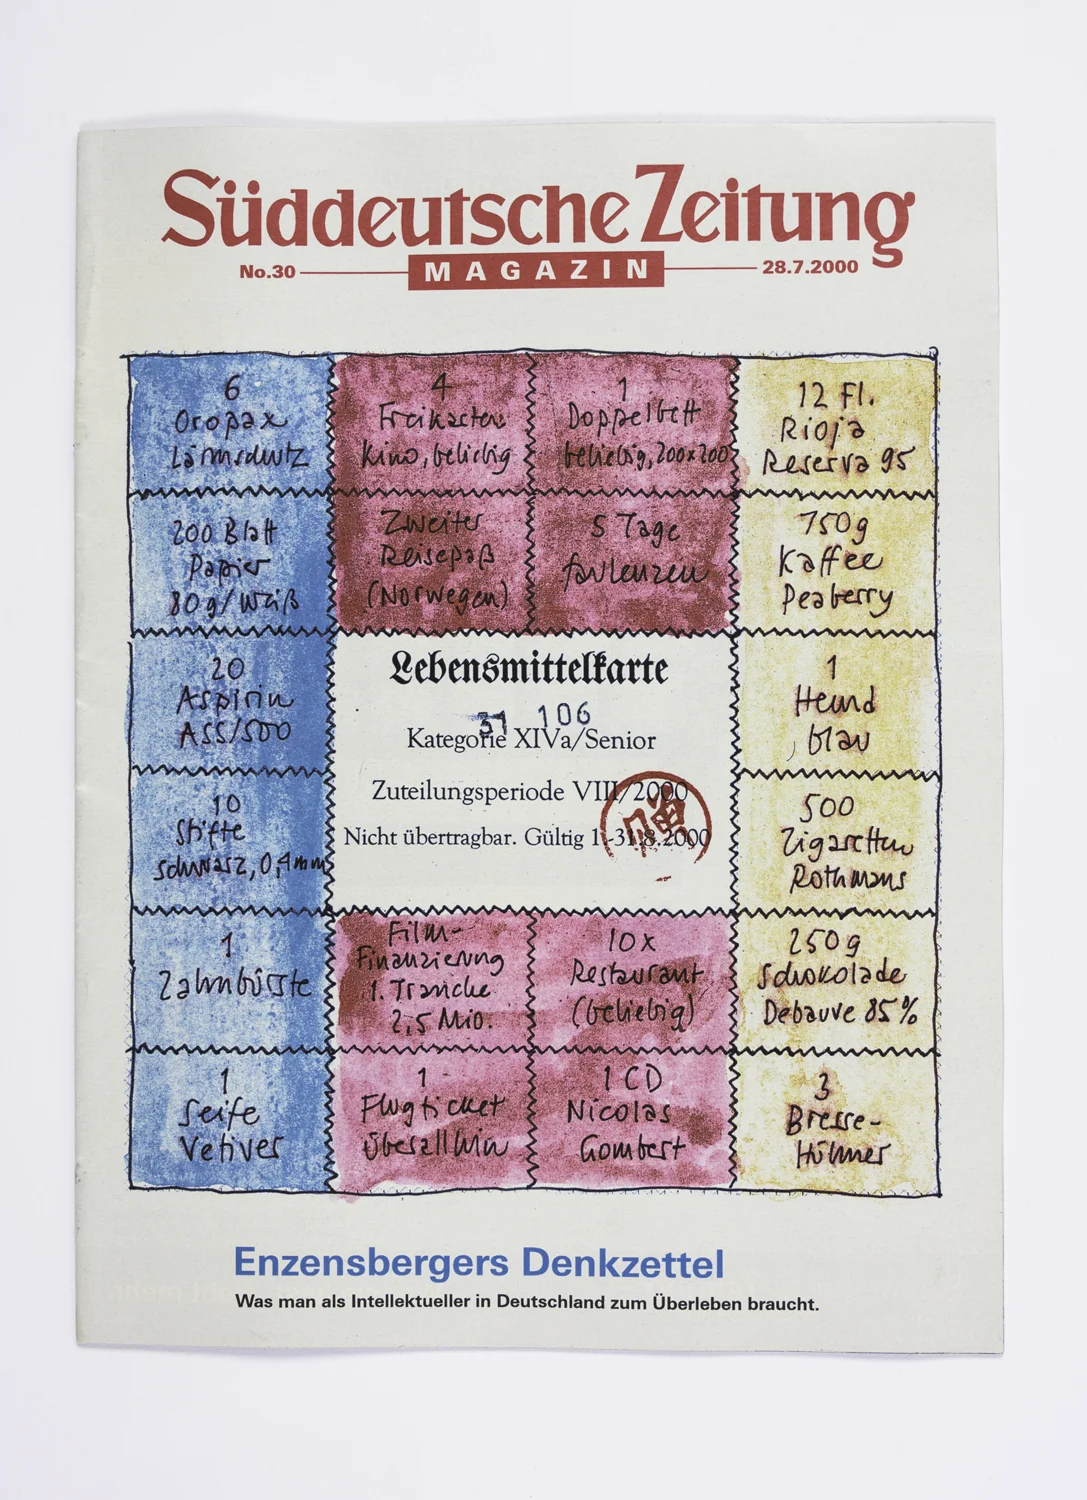 Süddeutsche Zeitung
No.30
MAGAZIN
28.7.2000
6
Oropax
Lärmschutz
4
Freikarten
Kino, beliebig
1
Doppelbett
beliebig, 200x200
12 Fl.
Rioja
Reserva 95
200 Blatt
Papier
80g/Weiß
Zweiter
Reisepaß
(Norwegen)
5 Tage
faulenzen
750g
Kaffee
Peaberry
20
Aspirin
ASS/500
Lebensmittelkarte
37 106
Kategorie XIVa/Senior
Zuteilungsperiode VIII/2000
Nicht übertragbar. Gültig 1.-31.8.2000
1
Hemd
blau
10
Stifte
schwarz, 0,4mm
500
Zigaretten
Rothmans
1
Zahnbürste
Film-
Finanzierung
1. Tranche
2,5 Mio.
10x
Restaurant
(beliebig)
250g
Schokolade
Debauve 85%
1
Seife
Vetiver
1
Flugticket
überallhin
1 CD
Nicolas
Gombert
3
Bresse-
Hühner
Enzensbergers Denkzettel
Was man als Intellektueller in Deutschland zum Überleben braucht.